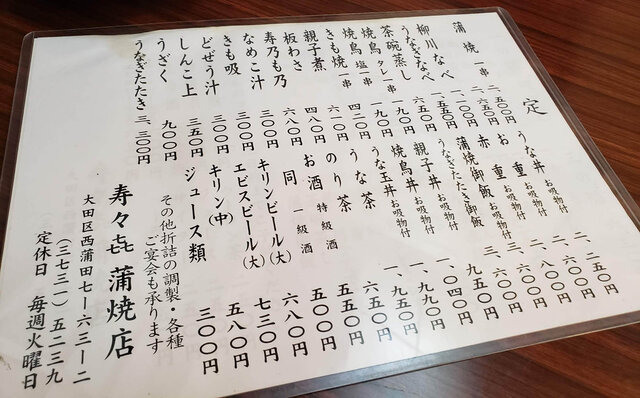 定
蒲焼 一串
柳川なべ
うなぎなべ
茶碗蒸し 六五〇円
焼鳥 タレ 一串 一九〇円
焼鳥 塩 一串 一九〇円
きも焼 一串 四二〇円
親子煮 六一〇円
板わさ 四八〇円
寿乃も乃 六八〇円
なめこ汁 三〇〇円
きも吸 三〇〇円
どぜう汁 三〇〇円
しんこ 上 三五〇円
うざく 九〇〇円
うなぎたたき 三、三〇〇円
うな丼 お吸物付 二、二五〇円
お重 お吸物付
赤重 お吸物付
蒲焼御飯 お吸物付
うなぎたたき御飯
親子丼 お吸物付 九五〇円
焼鳥丼 お吸物付 一、〇四〇円
うな玉丼 お吸物付 一、九九〇円
うな茶 一、九五〇円
のり茶 五五〇円
お酒 特級酒 五五〇円
同 一級酒 五〇〇円
キリンビール(大) 六八〇円
エビスビール(大) 七三〇円
キリン(中) 五八〇円
ジュース類 三〇〇円
その他折詰の調製・各種
ご宴会も承ります
寿々㐂 蒲焼店
大田区西蒲田七ー六三ー二
(三七三一)五二三九
定休日 毎週火曜日